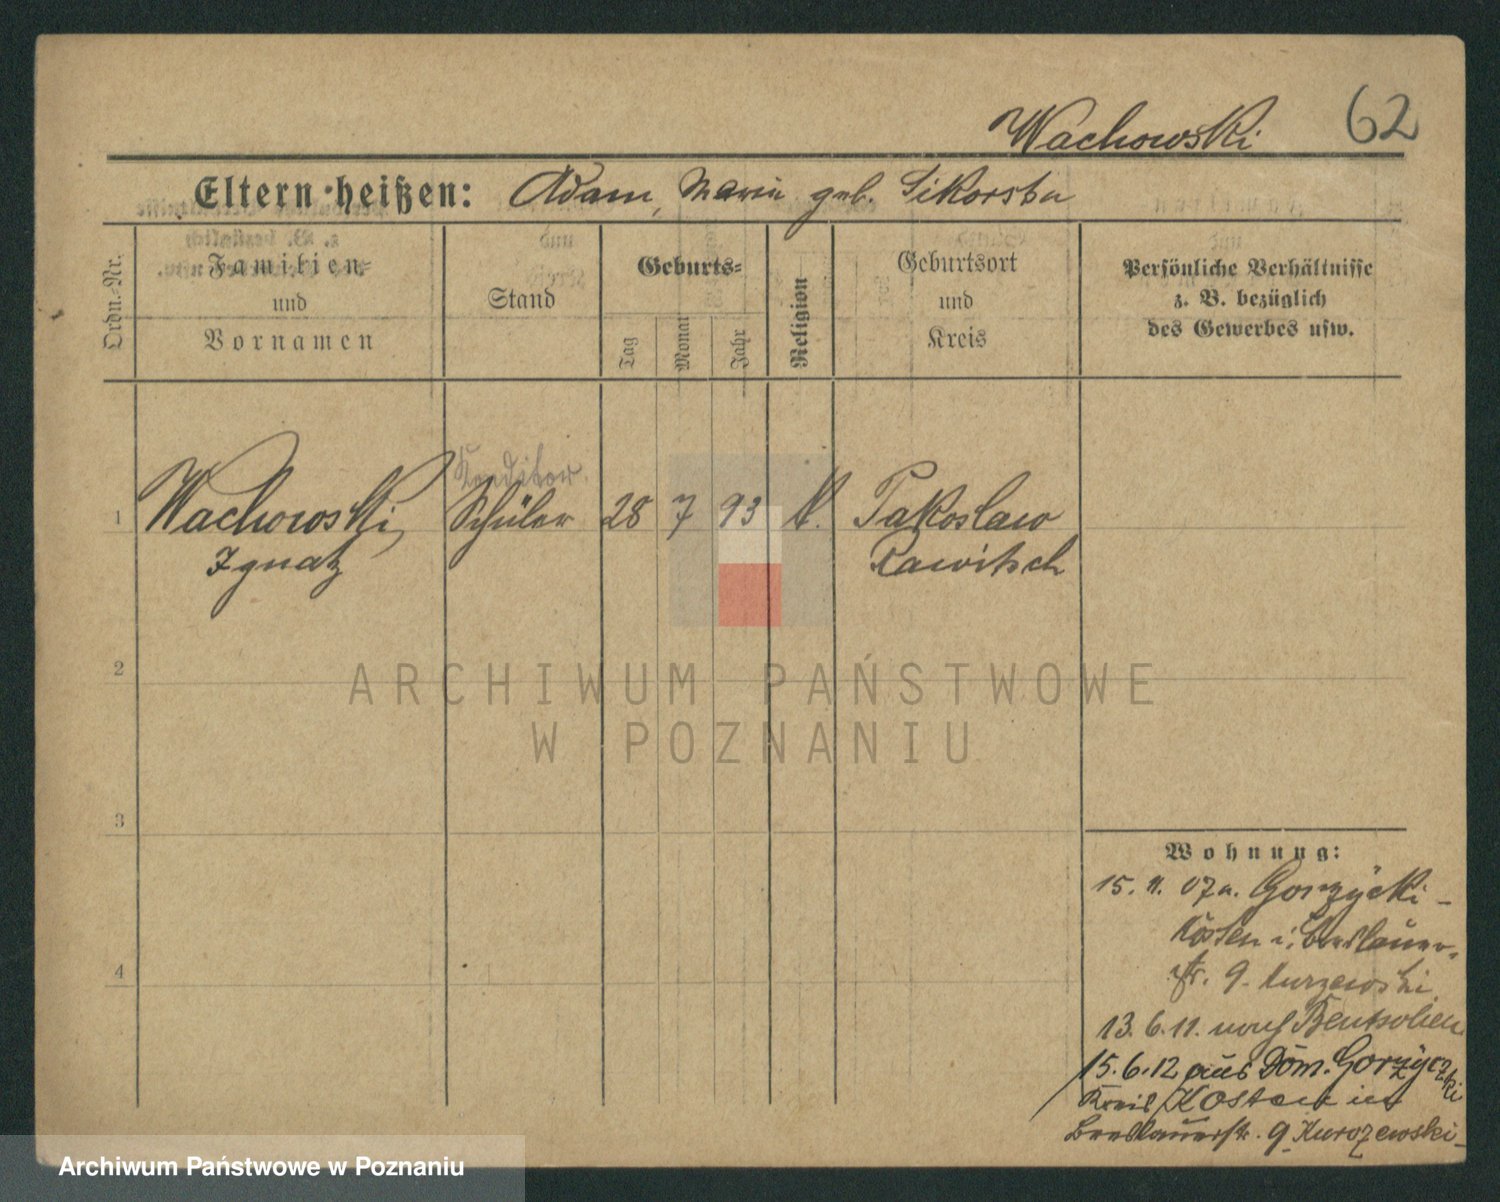 62
Wachowski
Eltern heißen: Adam, Maria geb. Sikorska
Ordn.-Nr.
Familien-
und
Vornamen
Stand
Geburts-
Tag
Monat
Jahr
Religion
Geburtsort
und
Kreis
Persönliche Verhältnisse
z. B. bezüglich
des Gewerbes usw.
Konditor.
1 Wachowski, Schüler 28 7 93 k. Pakoslaw
Ignatz Rawitsch
2
ARCHIWUM PAŃSTWOWE
W POZNANIU
3
Wohnung:
15. 4. 07 a. Gorzycki-
Kosten i. Breslauer-
str. 9. Kurzewski
4
13. 6. 11. nach Bentschen
15. 6. 12 aus Dom. Gorzyczki
Kreis Kosten in
Breslauerstr. 9 Kurozewski-
Archiwum Państwowe w Poznaniu